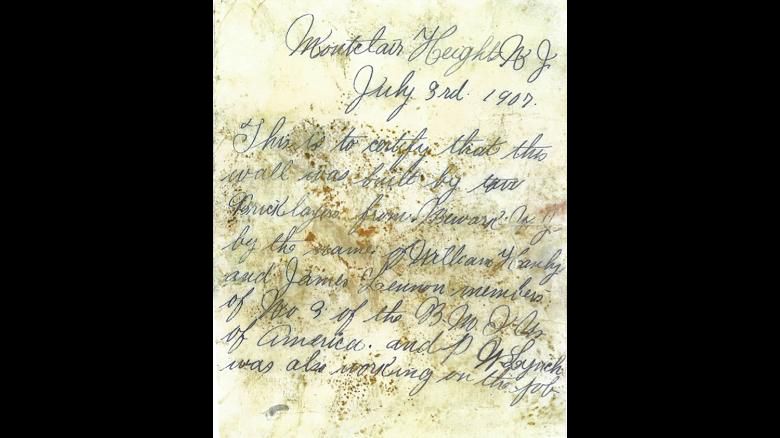 Montclair Heights N J
July 3rd. 1907.
This is to certify that this
wall was built by two
Bricklayers from Newark. N. J.
by the names of William Hanly
and James Lennon members
of No 3. of the B. M. I. U.
of America. and P W Lynch
was also working on the job